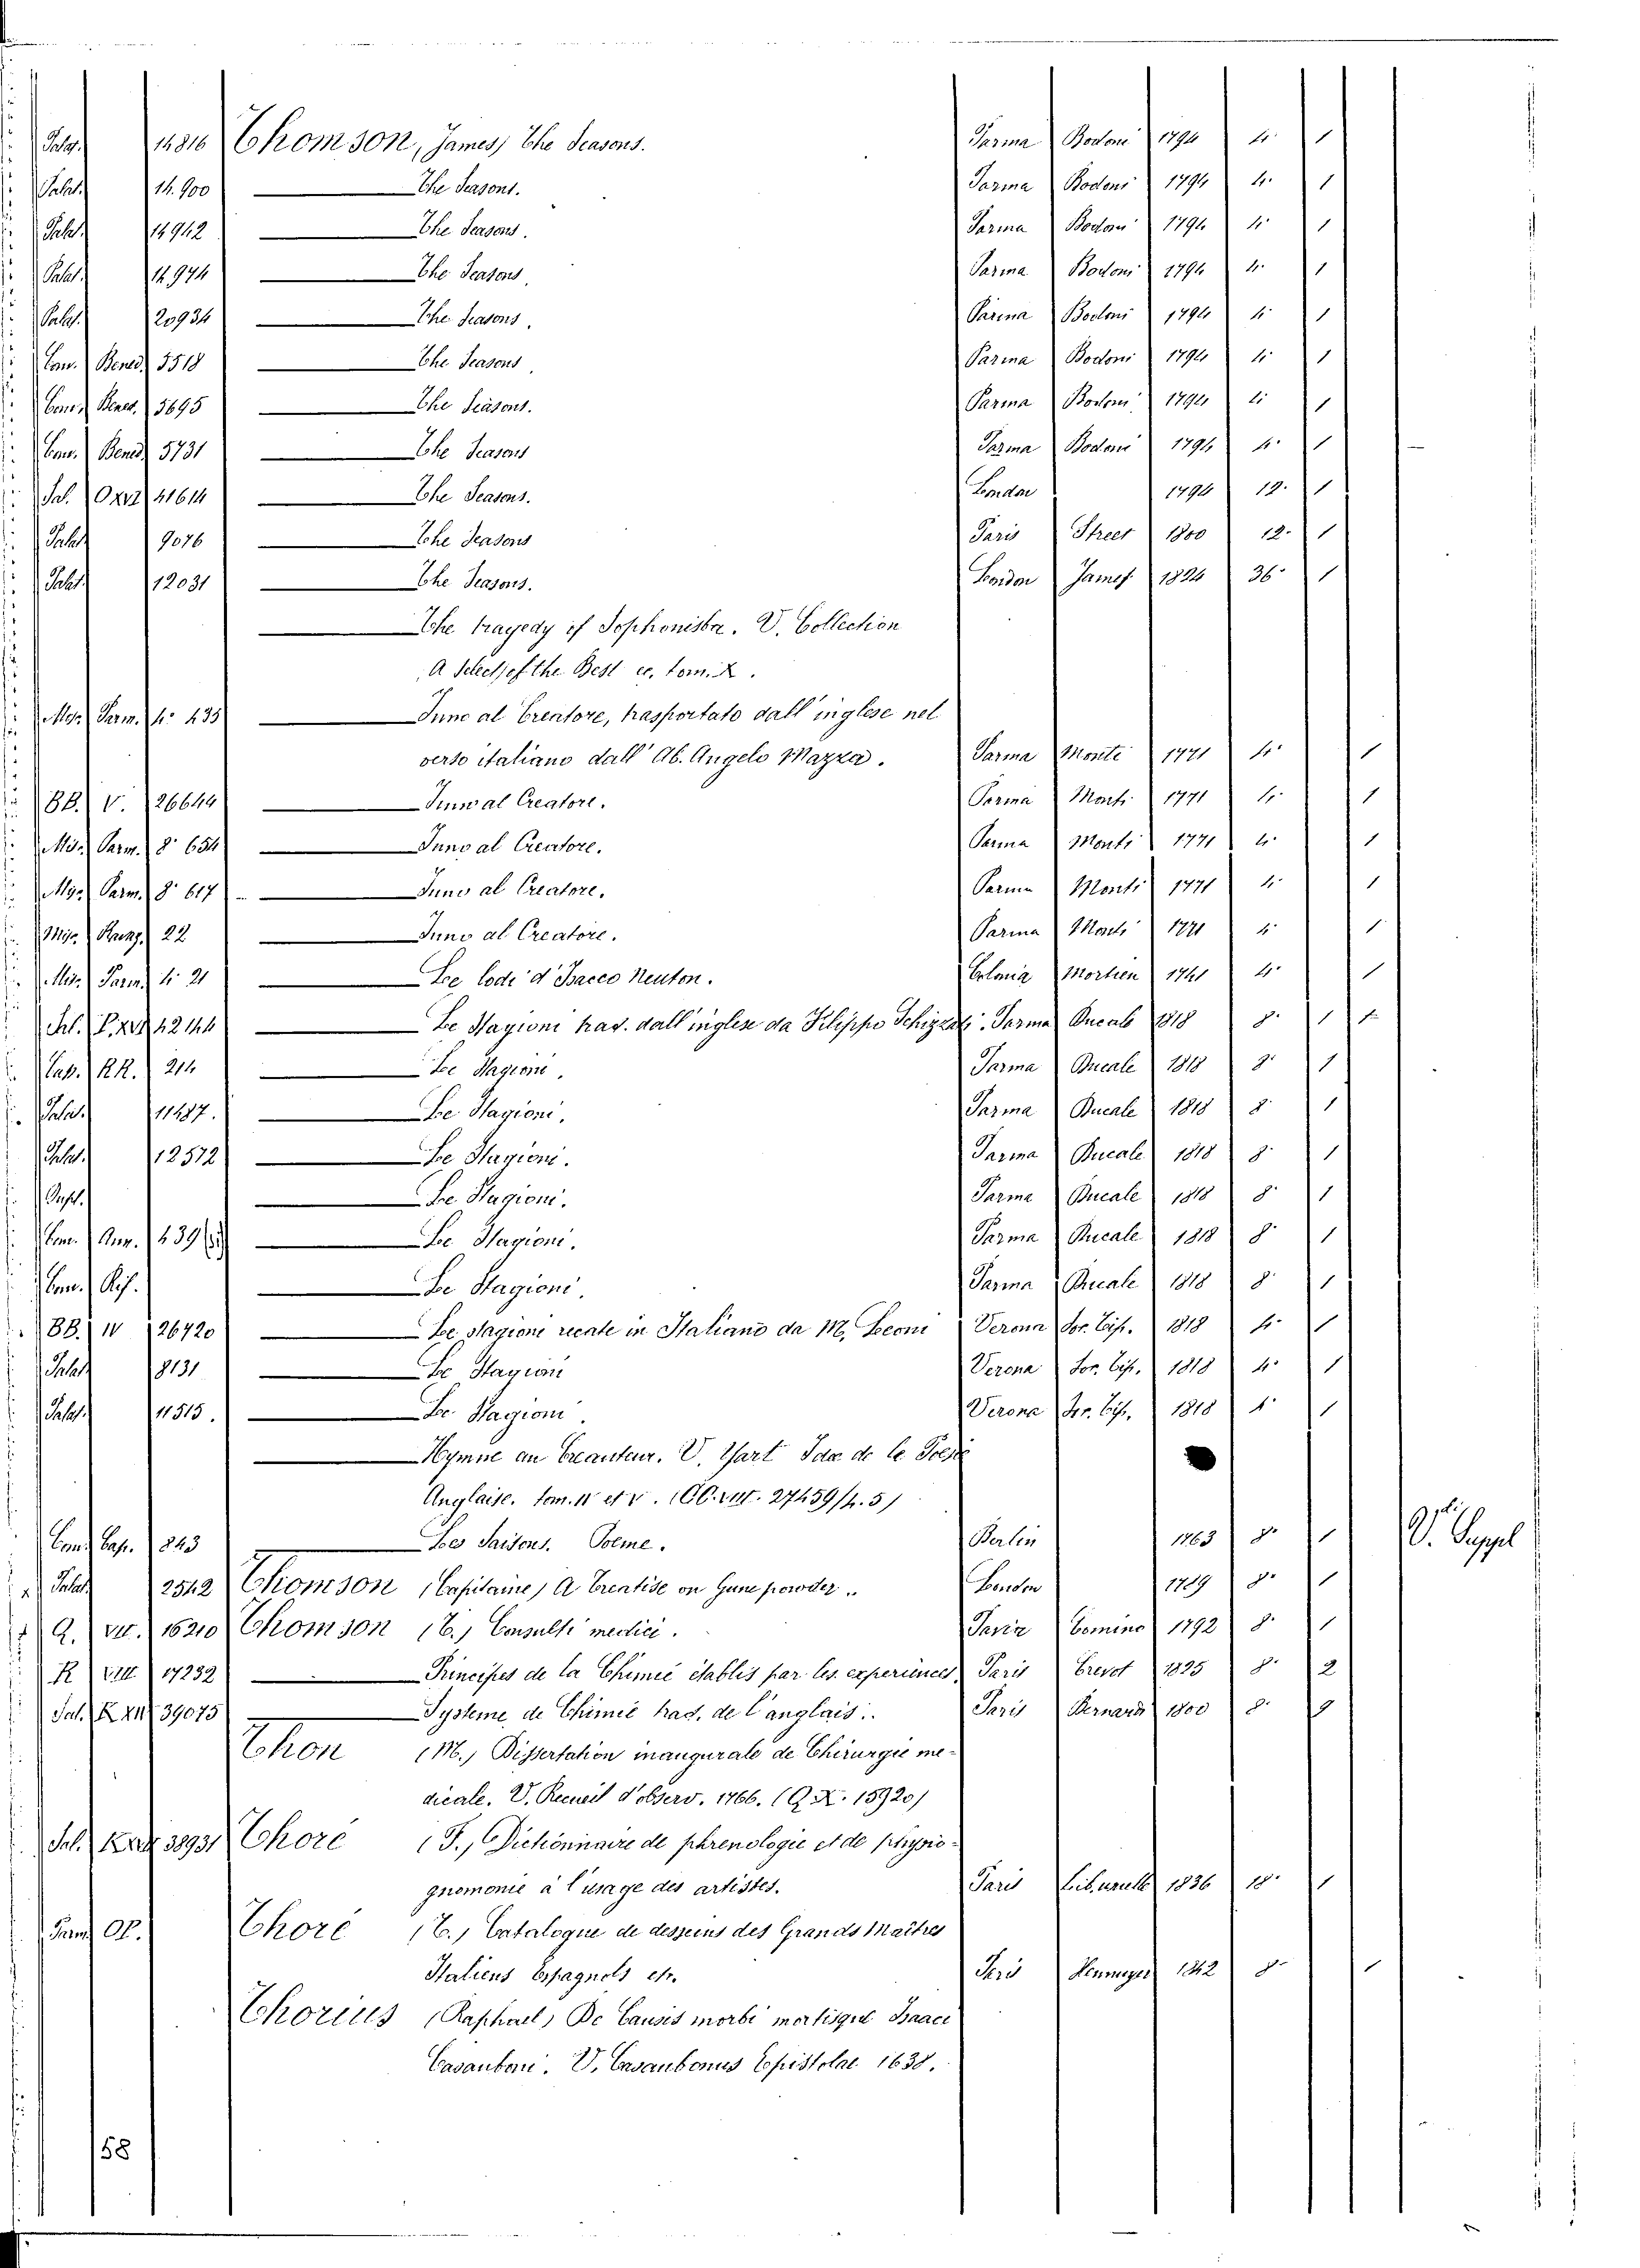 Palat. 14816 Thomson, (James) The Seasons. Parma Bodoni 1794 4.° 1
Palat. 14.900 The Seasons. Parma Bodoni 1794 4.° 1
Palat. 14942 The Seasons. Parma Bodoni 1794 4.° 1
Palat. 14.974 The Seasons. Parma Bodoni 1794 4.° 1
Palat. 20934 The Seasons. Parma Bodoni 1794 4.° 1
Conv. Bened. 5518 The Seasons. Parma Bodoni 1794 4.° 1
Conv. Bened. 5695 The Seasons. Parma Bodoni 1794 4.° 1
Conv. Bened. 5731 The Seasons Parma Bodoni 1794 4.° 1
Sal. 41614 The Seasons. London 1794 12.° 1
Palat. 9076 The Seasons Paris Street 1800 12.° 1
Palat. 12031 The Seasons. London James 1824 36.° 1
The tragedy of Sophonisba. V. Collection
A Select, of the Best tom. X.
Misc. Parm. 4.° 435 Inno al Creatore, trasportato dall' inglese nel
verso italiano dall' Ab. Angelo Mazza. Parma Monti 1771 4.° 1
BB. V. 26644 Inno al Creatore. Parma Monti 1771 4.° 1
Misc. Parm. 8.° 654 Inno al Creatore. Parma Monti 1771 4.° 1
Misc. Parm. 8.° 617 Inno al Creatore. Parma Monti 1771 4.° 1
Misc. 22 Inno al Creatore. Parma Monti 1771 4.° 1
Misc. Parm. 4.° 21 Le lodi d' Isacco Neuton. Colonia 1741 4.° 1
Sal. Le Stagioni trad. dall' inglese da Filippo Schizzati. Parma Ducale 1818 8.° 1
Cap. RR. 214 Le Stagioni. Parma Ducale 1818 8.° 1
Palat. 11487. Le Stagioni. Parma Ducale 1818 8.° 1
Palat. 12572 Le Stagioni. Parma Ducale 1818 8.° 1
Le Stagioni. Parma Ducale 1818 8.° 1
Conv. Ann. 439 Le Stagioni. Parma Ducale 1818 8.° 1
Conv. Rif. Le Stagioni. Parma Ducale 1818 8.° 1
BB. IV 26720 Le stagione recate in Italiano da M. Leoni Verona Soc. Tip. 1818 4.° 1
Palat. 8131 Le Stagioni Verona Soc. Tip. 1818 4.° 1
Palat. 11515. Le Stagioni. Verona Soc. Tip. 1818 4.° 1
Hymne au Createur. V. Yart Idée de la Poesie
Anglaise. tom. IV et V. 27459
Conv. Cap. 843 Les Saisons. Poeme. Berlin 1763 8.° 1 V. Suppl
Palat. 2542 Thomson (Capitaine) A Treatise on Gunepowder. London 1789 8.° 1
Q. VII. 16210 Thomson (T.) Consulti medici. Pavia Comino 1792 8.° 1
R VIII 17232 Principes de la Chimie établis par les experiences Paris Crevot 1825 8.° 2
Sal. K XII 39075 Systeme de Chimie trad. de l'anglais. Paris Bernard 1800 8.° 9
Thon (M.) Dissertation inaugurale de Chirurgie me-
dicale. V. Recueil d'observ. 1766. (Q. X. 15920)
Sal. 38931 Thoré (T.) Dictionnaire de phrenologie et de physio-
gnomonie à l'usage des artistes. Paris Lib. usuelle 1836 18.° 1
Parm. Thoré (T.) Catalogue de desseins des Grands Maitres
Italiens Espagnols etc. Paris 1842 8.° 1
Thorius (Raphael) De Causis morbi mortisque Isaaci
Casauboni. V. Casaubonus Epistolae 1638.
58